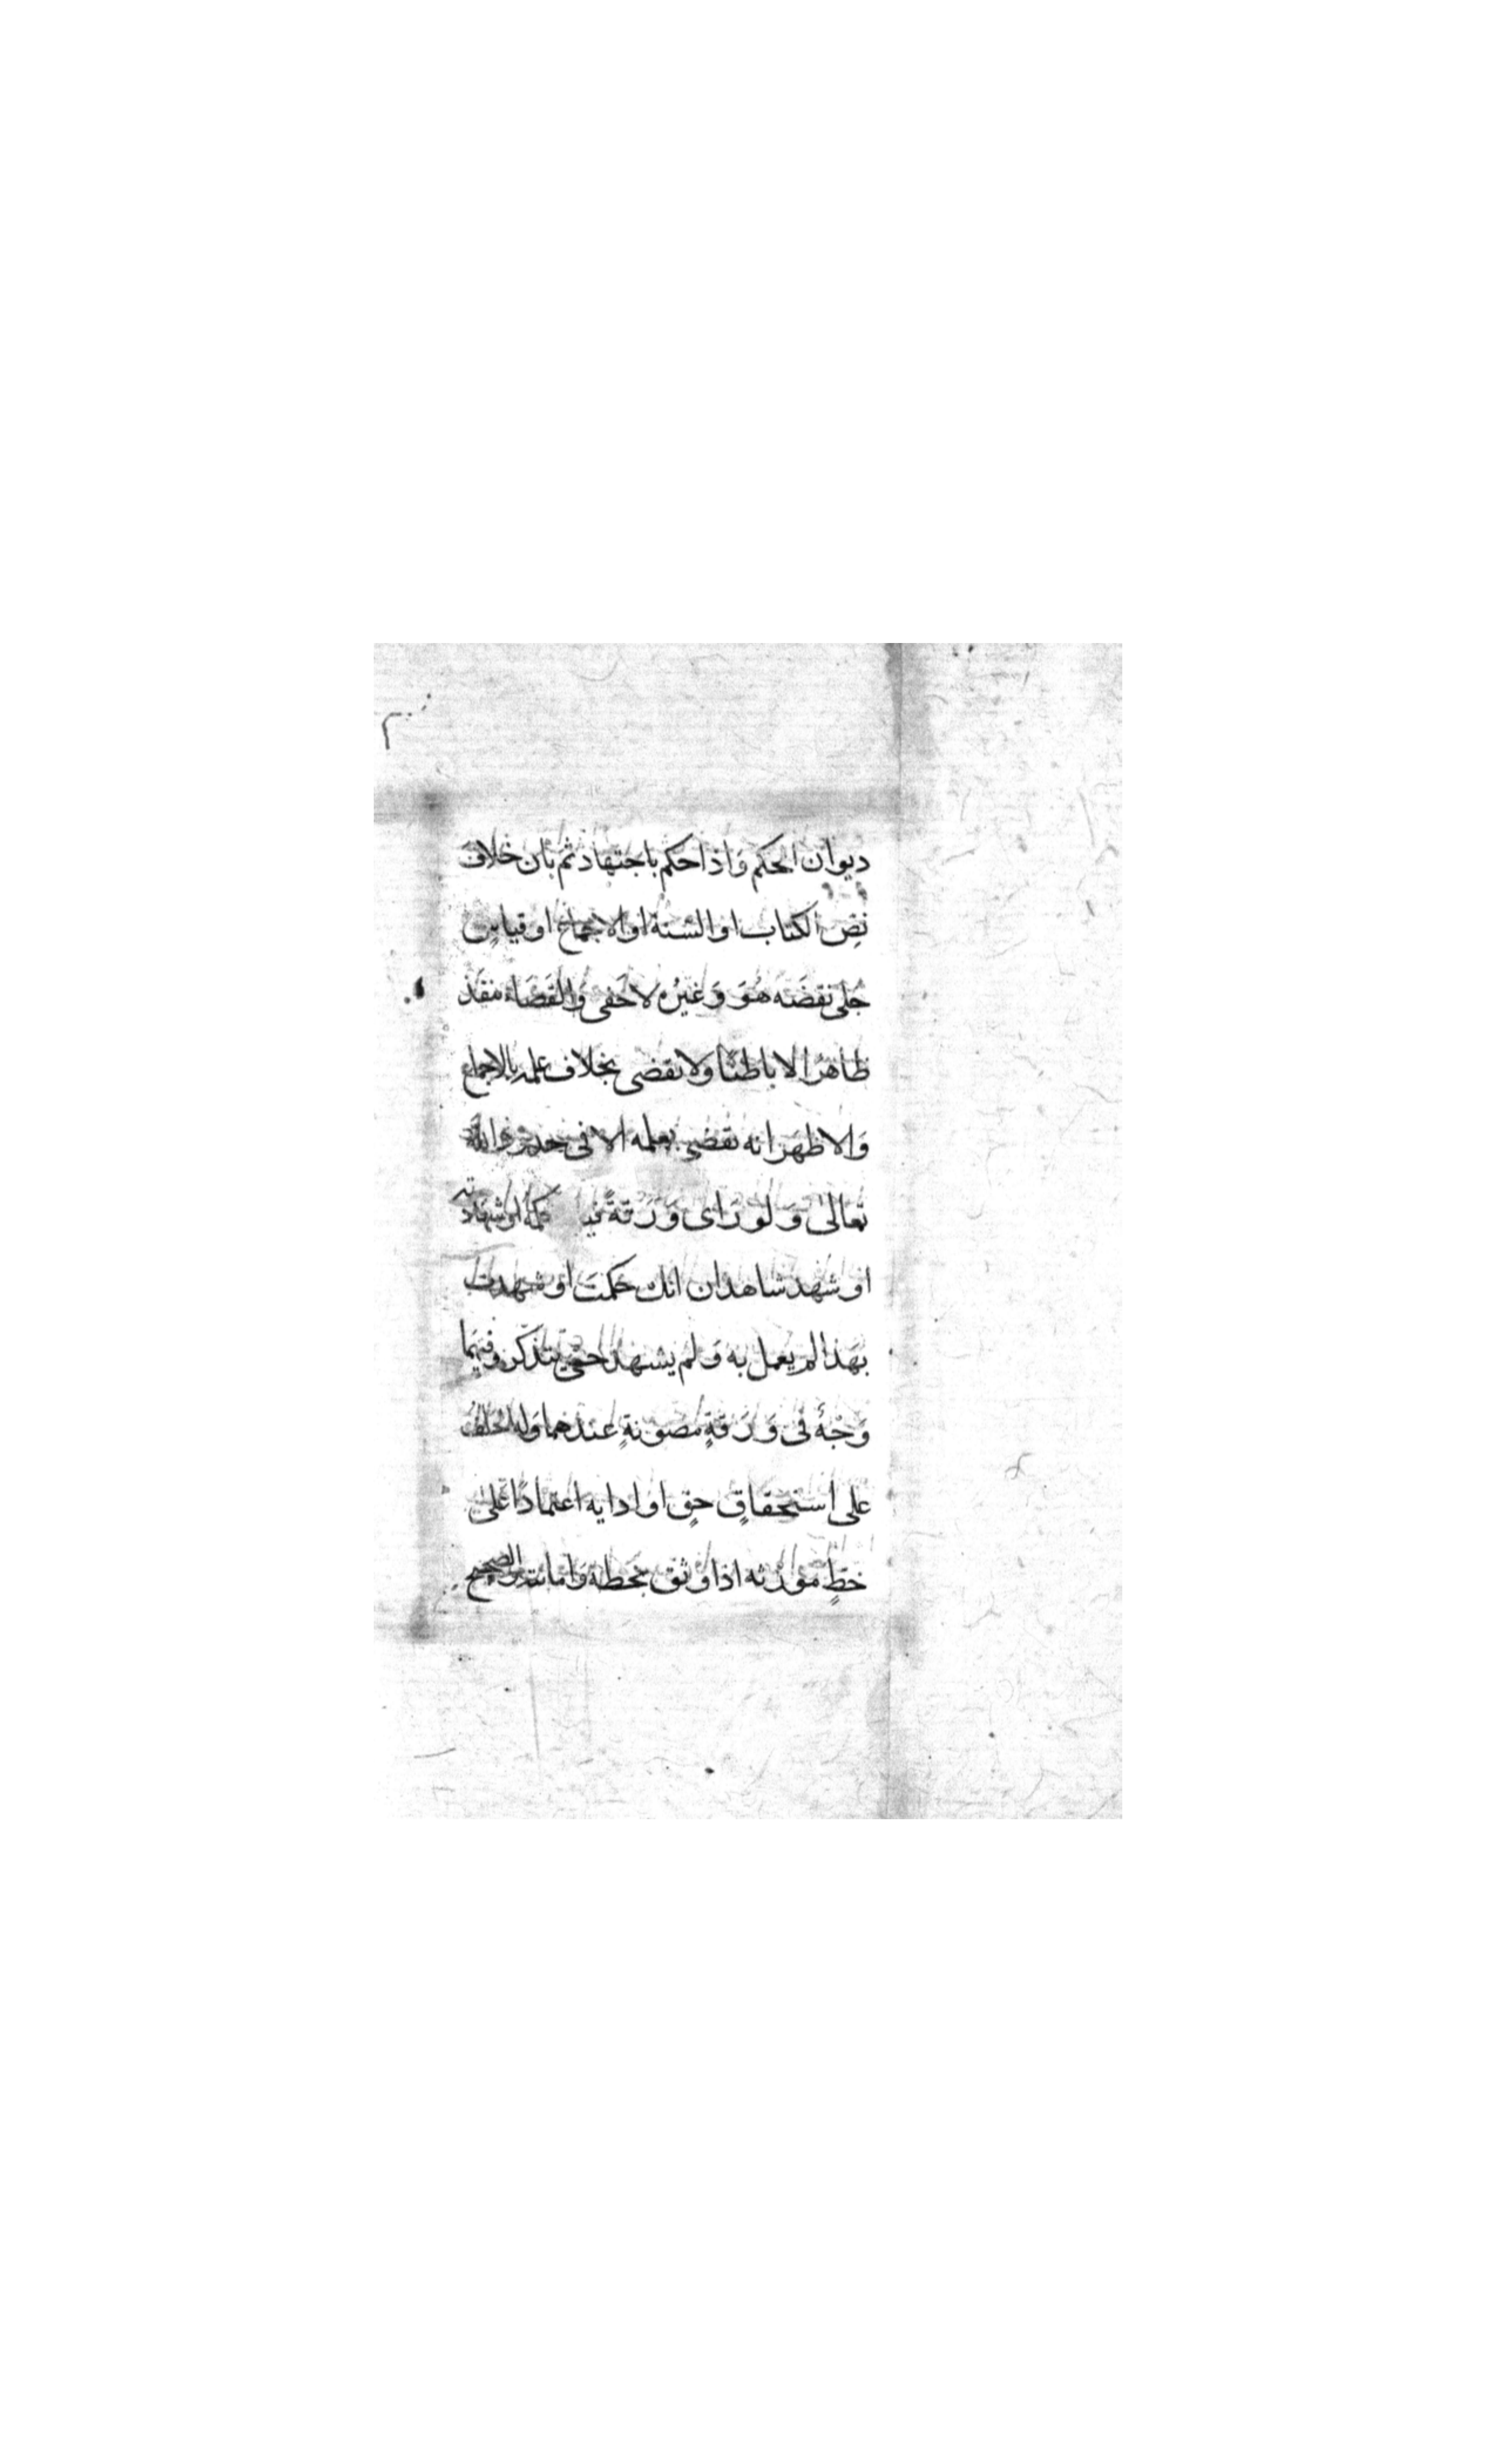 ديوان الحكم وَاذا حكم باجتهاد ثم بان خلافَ
نصِ الكتاب او السُنة او الاجماع او قياسٍ
جَلى نقضَه هُوَ وَغيرُه لا خَفى وَالقَضَاء منفذ
ظاهرًا لا باطنًا ولا يقضى بخلاف علمه بالاجماع
وَالاظهَرانه يقضى بعلمه الا فى حدود الله
تعالى وَلو رَاى وَرَقةً فيها حكمهُ او شهادته
او شهد شاهدان انك حَكمتَ او شهدت
بهَذا لم يعمل به وَلم يشهد حتى يتذكر وفيهمَا
وَجْهٌ فى وَرَقةٍ مصَونةٍ عندهما وَله الحلف
على استحقاقٍ حقٍ او ادايه اعتمادًا على
خطِ مورثه اذا وثق بخطه وَامانته والصحيح